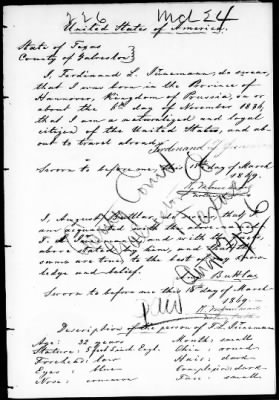 226 Mch 24
United States of America.
State of Texas
County of Galveston
I, Ferdinand L. Tünemann, do swear,
that I was born in the Province of
Hannover, Kingdom of Prussia, on or
about the 6th day of November 1836,
that I am a naturalized and loyal
citizen of the United States, and ab-
out to travel abroad.
Ferdinand L
Sworn to before me this day of March
1869.
I, August Buttlar, do swear that I
am acquainted with the above
F. L. and with the
above stated by him, and that the
same are true, to the best of my know-
ledge and belief.
Buttlar
Sworn to before me this 18th day of March
1869.
Description of the person of F. L. Tünemann
Age: 32 years
Stature: 5 feet Engl.
Forehead: low
Eyes: blue
Nose: common
Mouth: small
Chin: round
Hair: dark
Complexion: dark
Face: small